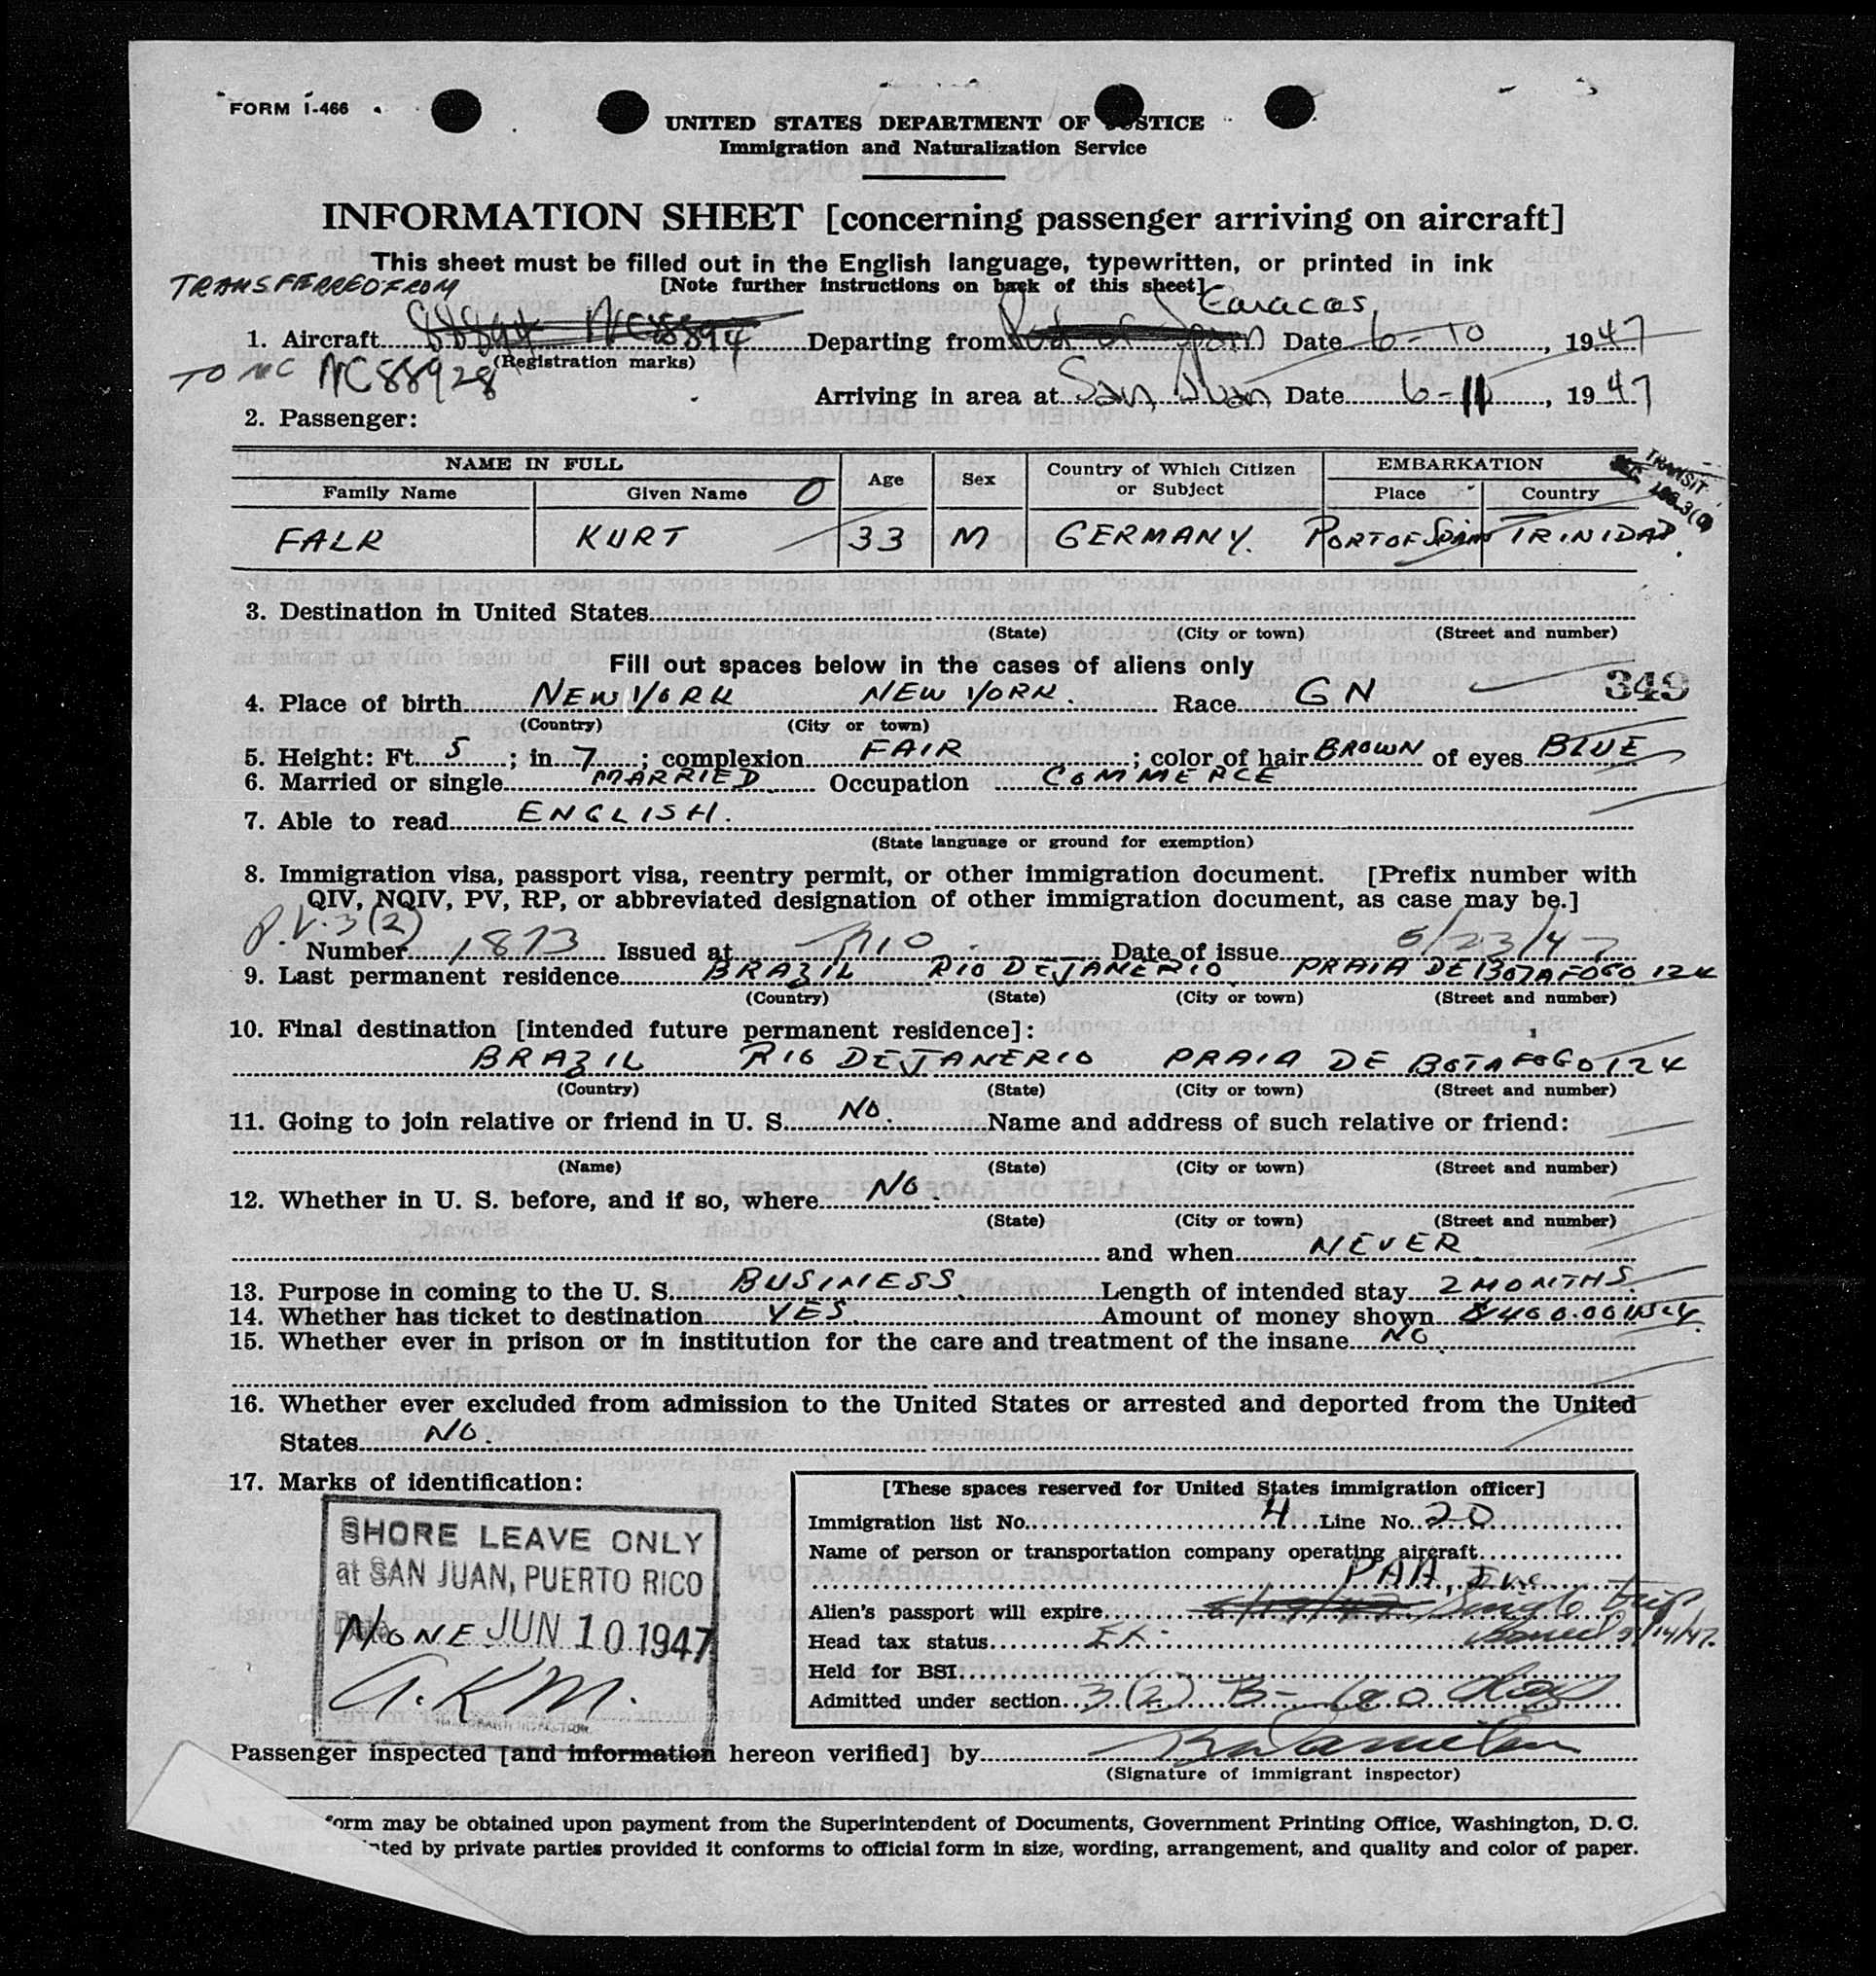 FORM I-466
UNITED STATES DEPARTMENT OF JUSTICE
Immigration and Naturalization Service
INFORMATION SHEET [concerning passenger arriving on aircraft]
This sheet must be filled out in the English language, typewritten, or printed in ink
TRANSFERRED FROM [Note further instructions on back of this sheet]
Caracas
1. Aircraft NC88894 Departing from Port of Spain Date 6-10, 1947
(Registration marks)
TO NC NC88928
Arriving in area at San Juan Date 6-11, 1947
2. Passenger:
NAME IN FULL Age Sex Country of Which Citizen or Subject EMBARKATION TRANSIT
Family Name Given Name O Place Country
FALK KURT 33 M GERMANY. PORT OF SPAIN TRINIDAD.
3. Destination in United States
(State) (City or town) (Street and number)
Fill out spaces below in the cases of aliens only
349
4. Place of birth NEW YORK NEW YORK. Race GN
(Country) (City or town)
5. Height: Ft. 5; in. 7; complexion FAIR; color of hair BROWN of eyes BLUE
6. Married or single MARRIED Occupation COMMERCE
7. Able to read ENGLISH.
(State language or ground for exemption)
8. Immigration visa, passport visa, reentry permit, or other immigration document. [Prefix number with
QIV, NQIV, PV, RP, or abbreviated designation of other immigration document, as case may be.]
P.V. 3(2)
Number 1873 Issued at RIO Date of issue 5/23/47
9. Last permanent residence BRAZIL RIO DE JANERIO PRAIA DE BOTAFOGO 124
(Country) (State) (City or town) (Street and number)
10. Final destination [intended future permanent residence]:
BRAZIL RIO DE JANERIO PRAIA DE BOTAFOGO 124
(Country) (State) (City or town) (Street and number)
11. Going to join relative or friend in U. S. NO. Name and address of such relative or friend:
(Name) (State) (City or town) (Street and number)
12. Whether in U. S. before, and if so, where NO.
(State) (City or town) (Street and number)
and when NEVER
13. Purpose in coming to the U. S. BUSINESS. Length of intended stay 2 MONTHS.
14. Whether has ticket to destination YES. Amount of money shown $400.00
15. Whether ever in prison or in institution for the care and treatment of the insane NO.
16. Whether ever excluded from admission to the United States or arrested and deported from the United
States NO.
17. Marks of identification:
SHORE LEAVE ONLY
at SAN JUAN, PUERTO RICO
Date JUN 10 1947
NONE
A.K.M.
IMMIGRANT INSPECTOR
[These spaces reserved for United States immigration officer]
Immigration list No. 4 Line No. 20
Name of person or transportation company operating aircraft
PAA, Inc
Alien's passport will expire Single trip
Head tax status EX. issued 5/14/47.
Held for BSI
Admitted under section 3(2) B- 60 days
Passenger inspected [and information hereon verified] by
(Signature of immigrant inspector)
form may be obtained upon payment from the Superintendent of Documents, Government Printing Office, Washington, D. C.
by private parties provided it conforms to official form in size, wording, arrangement, and quality and color of paper.